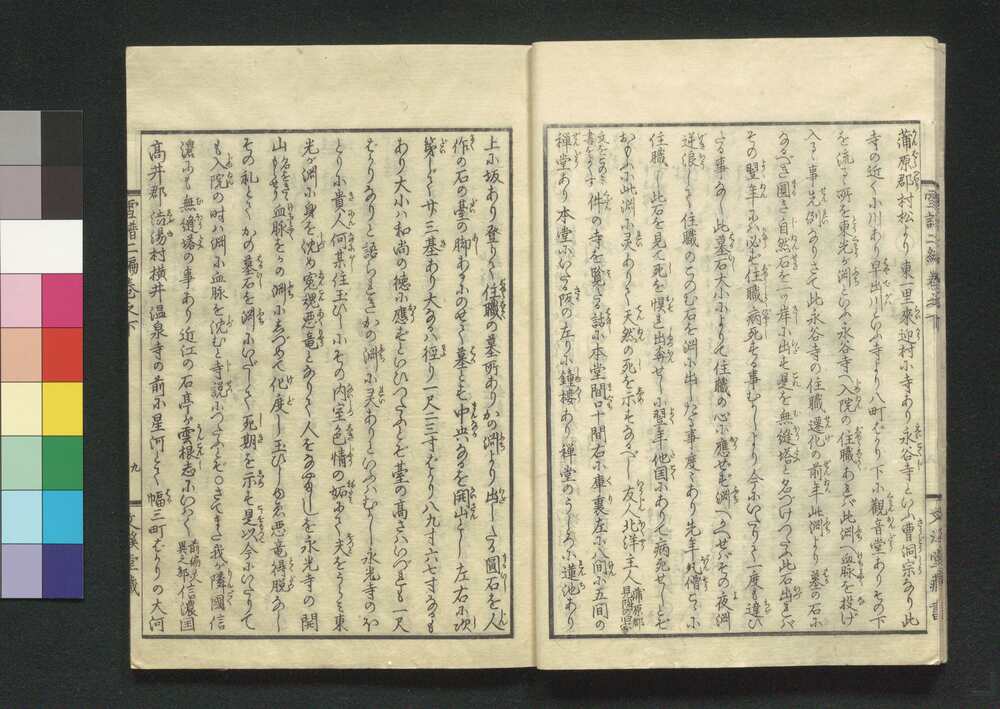 蒲原郡村松より東一里來迎村小寺あり永谷寺といふ曹洞宗なり此
寺の近く小川あり早出川といふ寺より八町ばかり下小觀音堂ありその下
を流るゝ所を東光が淵といふ永谷寺へ入院の住職あれバ此淵へ血脈を投げ
入るゝ事先例なりさて此永谷寺の住職遷化の前年此淵より墓の石小
なるべき圓き自然石を一ツ岸小出す是を無縫塔と名づけつたふ此石出れバ
その翌年小ハ必ず住職病死する事むかしより今小いたりて一度も違ひ
たる事なし此墓石大小小よりて住職の心小應ぜず淵へかへせバその夜淵
逆浪して住職のこのむ石を淵小出したる事度々あり先年凡僧こゝ小
住職し此石を見て死を惧れ出奔せし小翌年他国小ありて病死せしとぞ
おもふ小此淵小灵ありて天然の死を示すなるべし友人北洋主人蒲原郡
件の寺を覧たる話小本堂間口十間右小庫裏左小八間小五間の
禅堂あり本堂小いたる阪の左り小鐘樓あり禅堂のうしろ小蓮池あり
上小坂あり登りて住職の墓所ありかの淵より出したる圓石を人
作の石の臺の脚ある小のせて墓とす中央なるを開山とし左右小次
第して廿三基あり大なるハ径り一尺二三寸ばかり八九寸六七寸なるも
あり大小ハ和尚の徳小應ずといひつたふとぞ臺の高さハいづれも一尺
ばかりなりと語られきかの淵小灵ありといふハむかし永光寺のほ
とり小貴人何某住玉ひし小その内室色情の妬にて夫をうらミ東
光が淵小身を沈め冤魂悪竜となりて人をなやめしを永光寺の開
山血脈をかの淵小しづめて化度し玉ひしゆゑ悪竜得脱し
その礼とてかの墓石を淵小いだして死期を示す是以今小いたりて
も入院の時ハ淵小血脈を沈むと寺説小つたふとぞ○さてまた我が隣国信
濃小も無縫塔の事あり近江の石亭が雲根志小いはく前編灵異之部信濃国
高井郡渋湯村横井温泉寺の前小星河とて幅三町ばかりの大河
雪譜二編巻之下
九
文溪堂藏